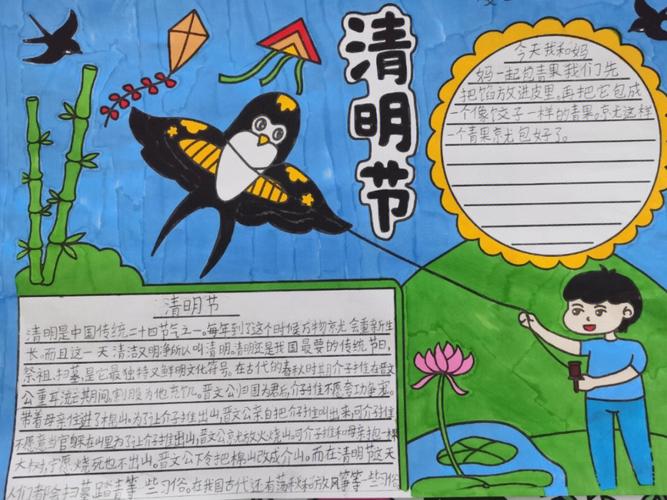 清明节
今天我和妈
妈一起包青果我们先
把馅放进皮里,再把它包成
一个像饺子一样的青果。京尤这样
一个青果京尤包好了。
清明节
清明是中国传统二十四节气之一。每年到了这个时候万物京尤会重新生
长。而且这一天清洁又明净所以叫清明。清明还是我国最要的传统节日,
祭祖、扫墓,是它最独特又鲜明文化符号。在古代的春秋时期介子推在晋文
公重耳流亡期间,割股为他充饥。晋文公归国为君后,介子推不愿夸功争宠。
带着母亲住进了棉山。为了让介子推出山,晋文公亲自把介子推叫出来,可介子推
不愿意当官躲在山里为了让介子推出山,晋文公京尤放火烧山。可介子推和母亲抱一棵
大树,宁愿烧死也不出山。晋文公下令把棉山改成介山。而在清明节这天
人们都会扫墓、踏青等一些习俗。在我国古代还有荡秋和放风筝等一些习俗